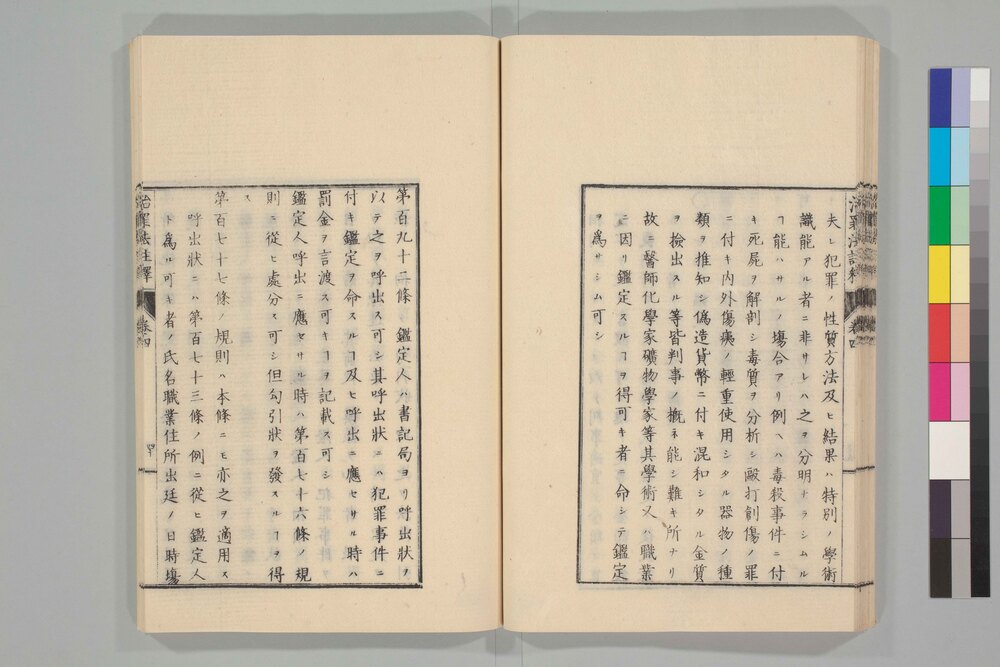 夫レ犯罪ノ性質方法及ヒ結果ハ特別ノ學術
識能アル者ニ非サレハ之ヲ分明ナラシムル
ヿ能ハサルノ塲合アリ例ヘハ毒殺事件ニ付
キ死屍ヲ解剖シ毒質ヲ分析シ毆打創傷ノ罪
ニ付キ内外傷痍ノ輕重使用シタル器物ノ種
類ヲ推知シ僞造貨幣ニ付キ混和シタル金質
ヲ檢出スル等皆判事ノ概ネ能シ難キ所ナリ
故ニ醫師化學家礦物學家等其學術又ハ職業
ニ因リ鑑定スルヿヲ得可キ者ニ命シテ鑑定
ヲ爲サシム可シ
治罪法註釋 卷四
第百九十二條 鑑定人ハ書記局ヨリ呼出狀ヲ
以テ之ヲ呼出ス可シ其呼出狀ニハ犯罪事件ニ
付キ鑑定ヲ命スルヿ及ヒ呼出ニ應セサル時ハ
罰金ヲ言渡ス可キヿヲ記載ス可シ
鑑定人呼出ニ應セサル時ハ第百七十六條ノ規
則ニ從ヒ處分ス可シ但勾引狀ヲ發スルヿヲ得
ス
第百七十七條ノ規則ハ本條ニモ亦之ヲ適用ス
呼出狀ニハ第百七十三條ノ例ニ從ヒ鑑定人
ト爲ル可キ者ノ氏名職業住所出廷ノ日時塲
治罪法註釋 卷四